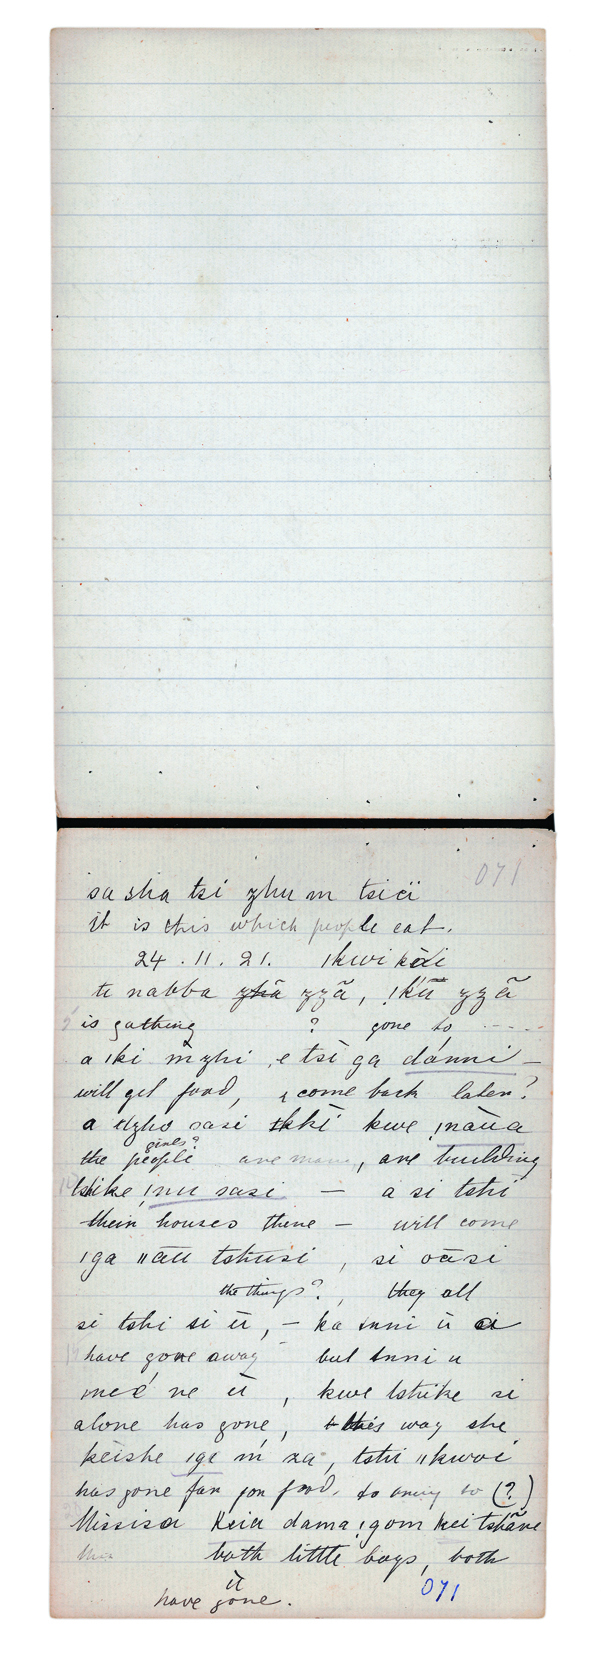 071
sa sha tsi zhu m tsiä
it is this which people eat.
24 . 11 . 21. ǀkwi kǎi
ti nabba zhā zzã, ǃkū zzã
is gathing ? gone to - - - -
a ǀki m̀zhi , e tsì ga dánni —
will get food, & come back later?
a dzho sasi tkhi kwe ǃnāùa
girls?
the people are many, are building
tshike ǃnu sasi — a si tshi
their houses there — will come
ǀga ǁāū tshusi , si oāsi
the things? , they all
si tshi si ū, — ka ünni ù
have gone away but ünni u
meé ne ū , kwe tshike si
alone has gone, this way she
keishe ǀga ḿ xa , tshi ǁkwoi
has gone far for food, to (?)
Missisa Keia dama ǃgom kei tshāne
both little boys, both
ū
have gone.
071